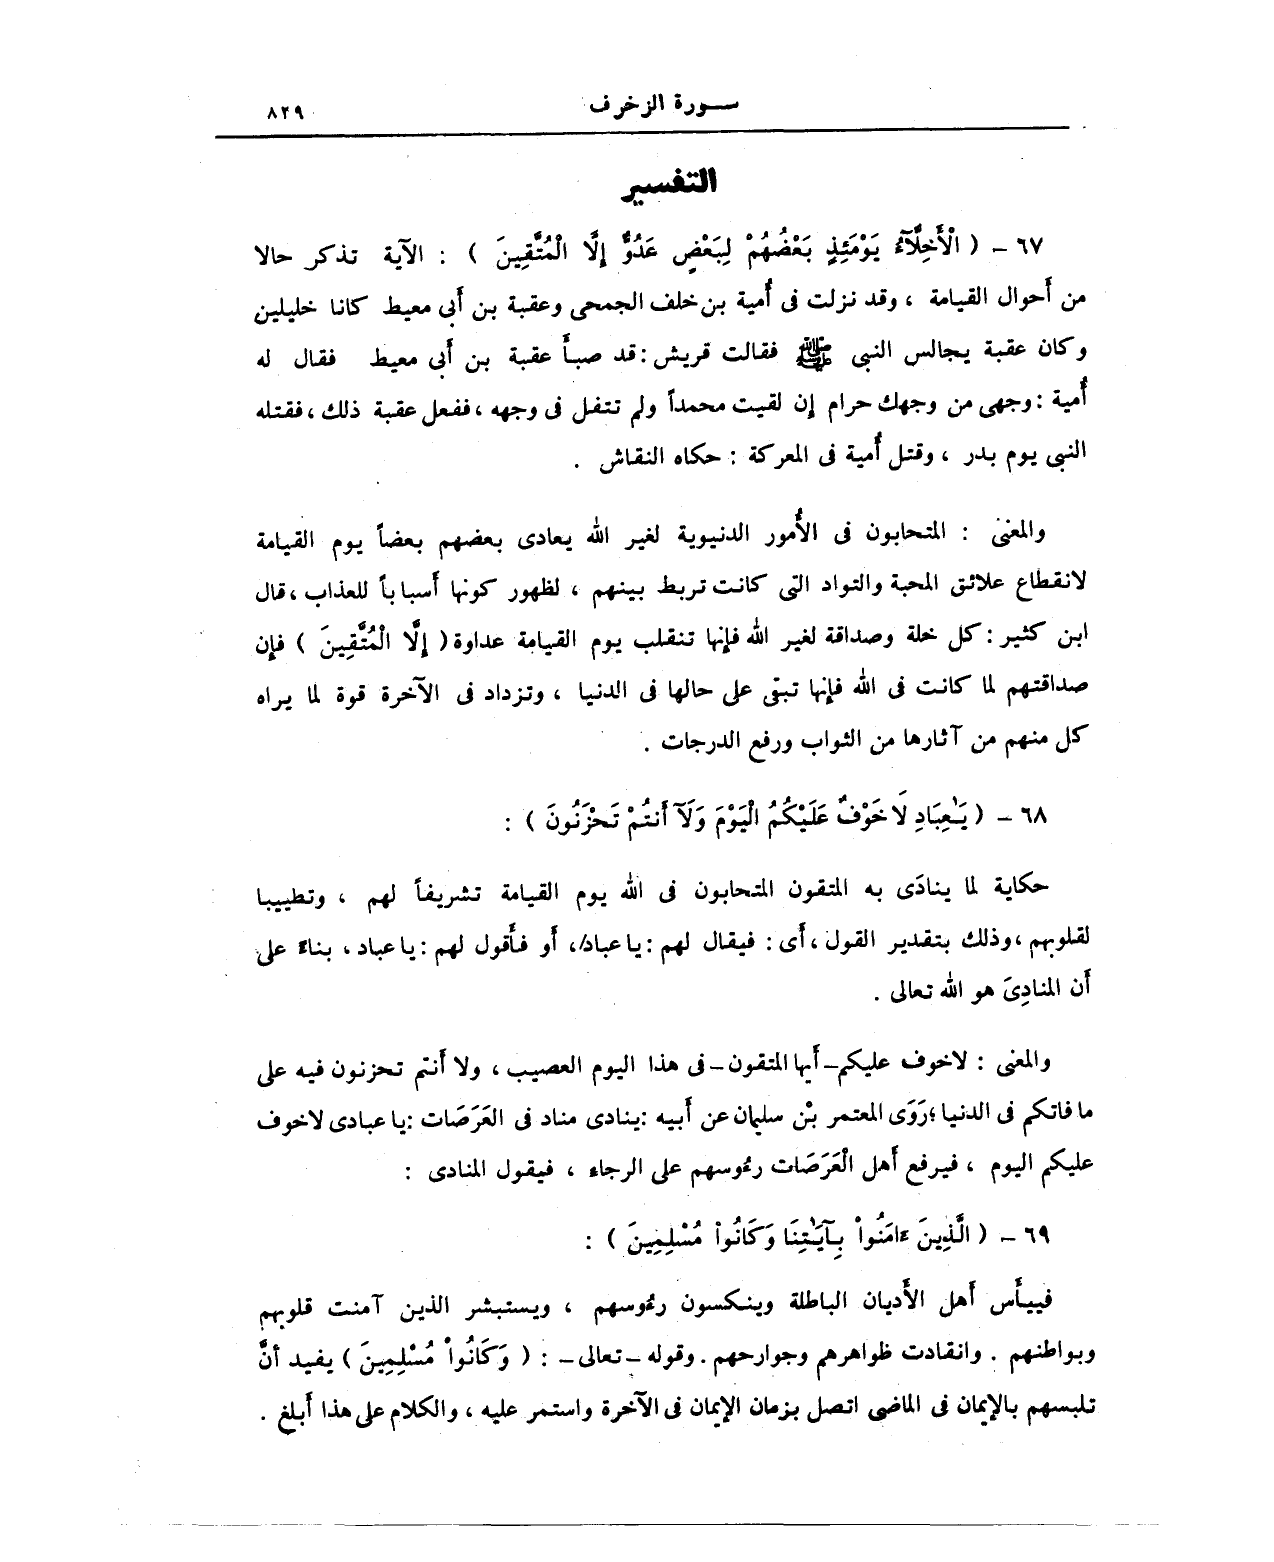 سورة الزخرف ٨٢٩
التفسير
٦٧ – ( الْأَخِلَّآءُ يَوْمَئِذٍ بَعْضُهُمْ لِبَعْضٍ عَدُوٌّ إِلَّا الْمُتَّقِينَ ) : الآية تذكر حالا
من أحوال القيامة ، وقد نزلت فى أُمية بن خلف الجمحى وعقبة بن أبى معيط كانا خليلين
وكان عقبة يجالس النبى ﷺ فقالت قريش : قد صبأ عقبة بن أبى معيط فقال له
أُمية : وجهى من وجهك حرام إن لقيت محمداً ولم تتفل فى وجهه ، ففعل عقبة ذلك ، فقتله
النبى يوم بدر ، وقتل أُمية فى المعركة : حكاه النقاش .
والمعنى : المتحابون فى الأُمور الدنيوية لغير الله يعادى بعضهم بعضاً يوم القيامة
لانقطاع علائق المحبة والتواد التى كانت تربط بينهم ، لظهور كونها أسباباً للعذاب ، قال
ابن كثير : كل خلة وصداقة لغير الله فإنها تنقلب يوم القيامة عداوة ( إِلَّا الْمُتَّقِينَ ) فإن
صداقتهم لما كانت فى الله فإنها تبقى على حالها فى الدنيا ، وتزداد فى الآخرة قوة لما يراه
كل منهم من آثارها من الثواب ورفع الدرجات .
٦٨ – ( يَٰعِبَادِ لَا خَوْفٌ عَلَيْكُمُ الْيَوْمَ وَلَآ أَنتُمْ تَحْزَنُونَ ) :
حكاية لما ينادَى به المتقون المتحابون فى الله يوم القيامة تشريفاً لهم ، وتطييبا
لقلوبهم ، وذلك بتقدير القول ، أى : فيقال لهم : يا عباد ، أو فأقول لهم : يا عباد ، بناءً على
أن المنادِىَ هو الله تعالى .
والمعنى : لا خوف عليكم – أيها المتقون – فى هذا اليوم العصيب ، ولا أنتم تحزنون فيه على
ما فاتكم فى الدنيا ؛ رَوَى المعتمر بْن سليمان عن أبيه : ينادى مناد فى العَرَصَات : يا عبادى لا خوف
عليكم اليوم ، فيرفع أهل الْعَرَصَات رءُوسهم على الرجاء ، فيقول المنادى :
٦٩ – ( الَّذِينَ ءَامَنُواْ بِـَٔايَـٰتِنَا وَكَانُواْ مُسْلِمِينَ ) :
فييأَس أهل الأَديان الباطلة وينكسون رءُوسهم ، ويستبشر الذين آمنت قلوبهم
وبواطنهم . وانقادت ظواهرهم وجوارحهم . وقوله – تعالى – : ( وَكَانُواْ مُسْلِمِينَ ) يفيد أنَّ
تلبسهم بالإيمان فى الماضى اتصل بزمان الإيمان فى الآخرة واستمر عليه ، والكلام على هذا أبلغ .